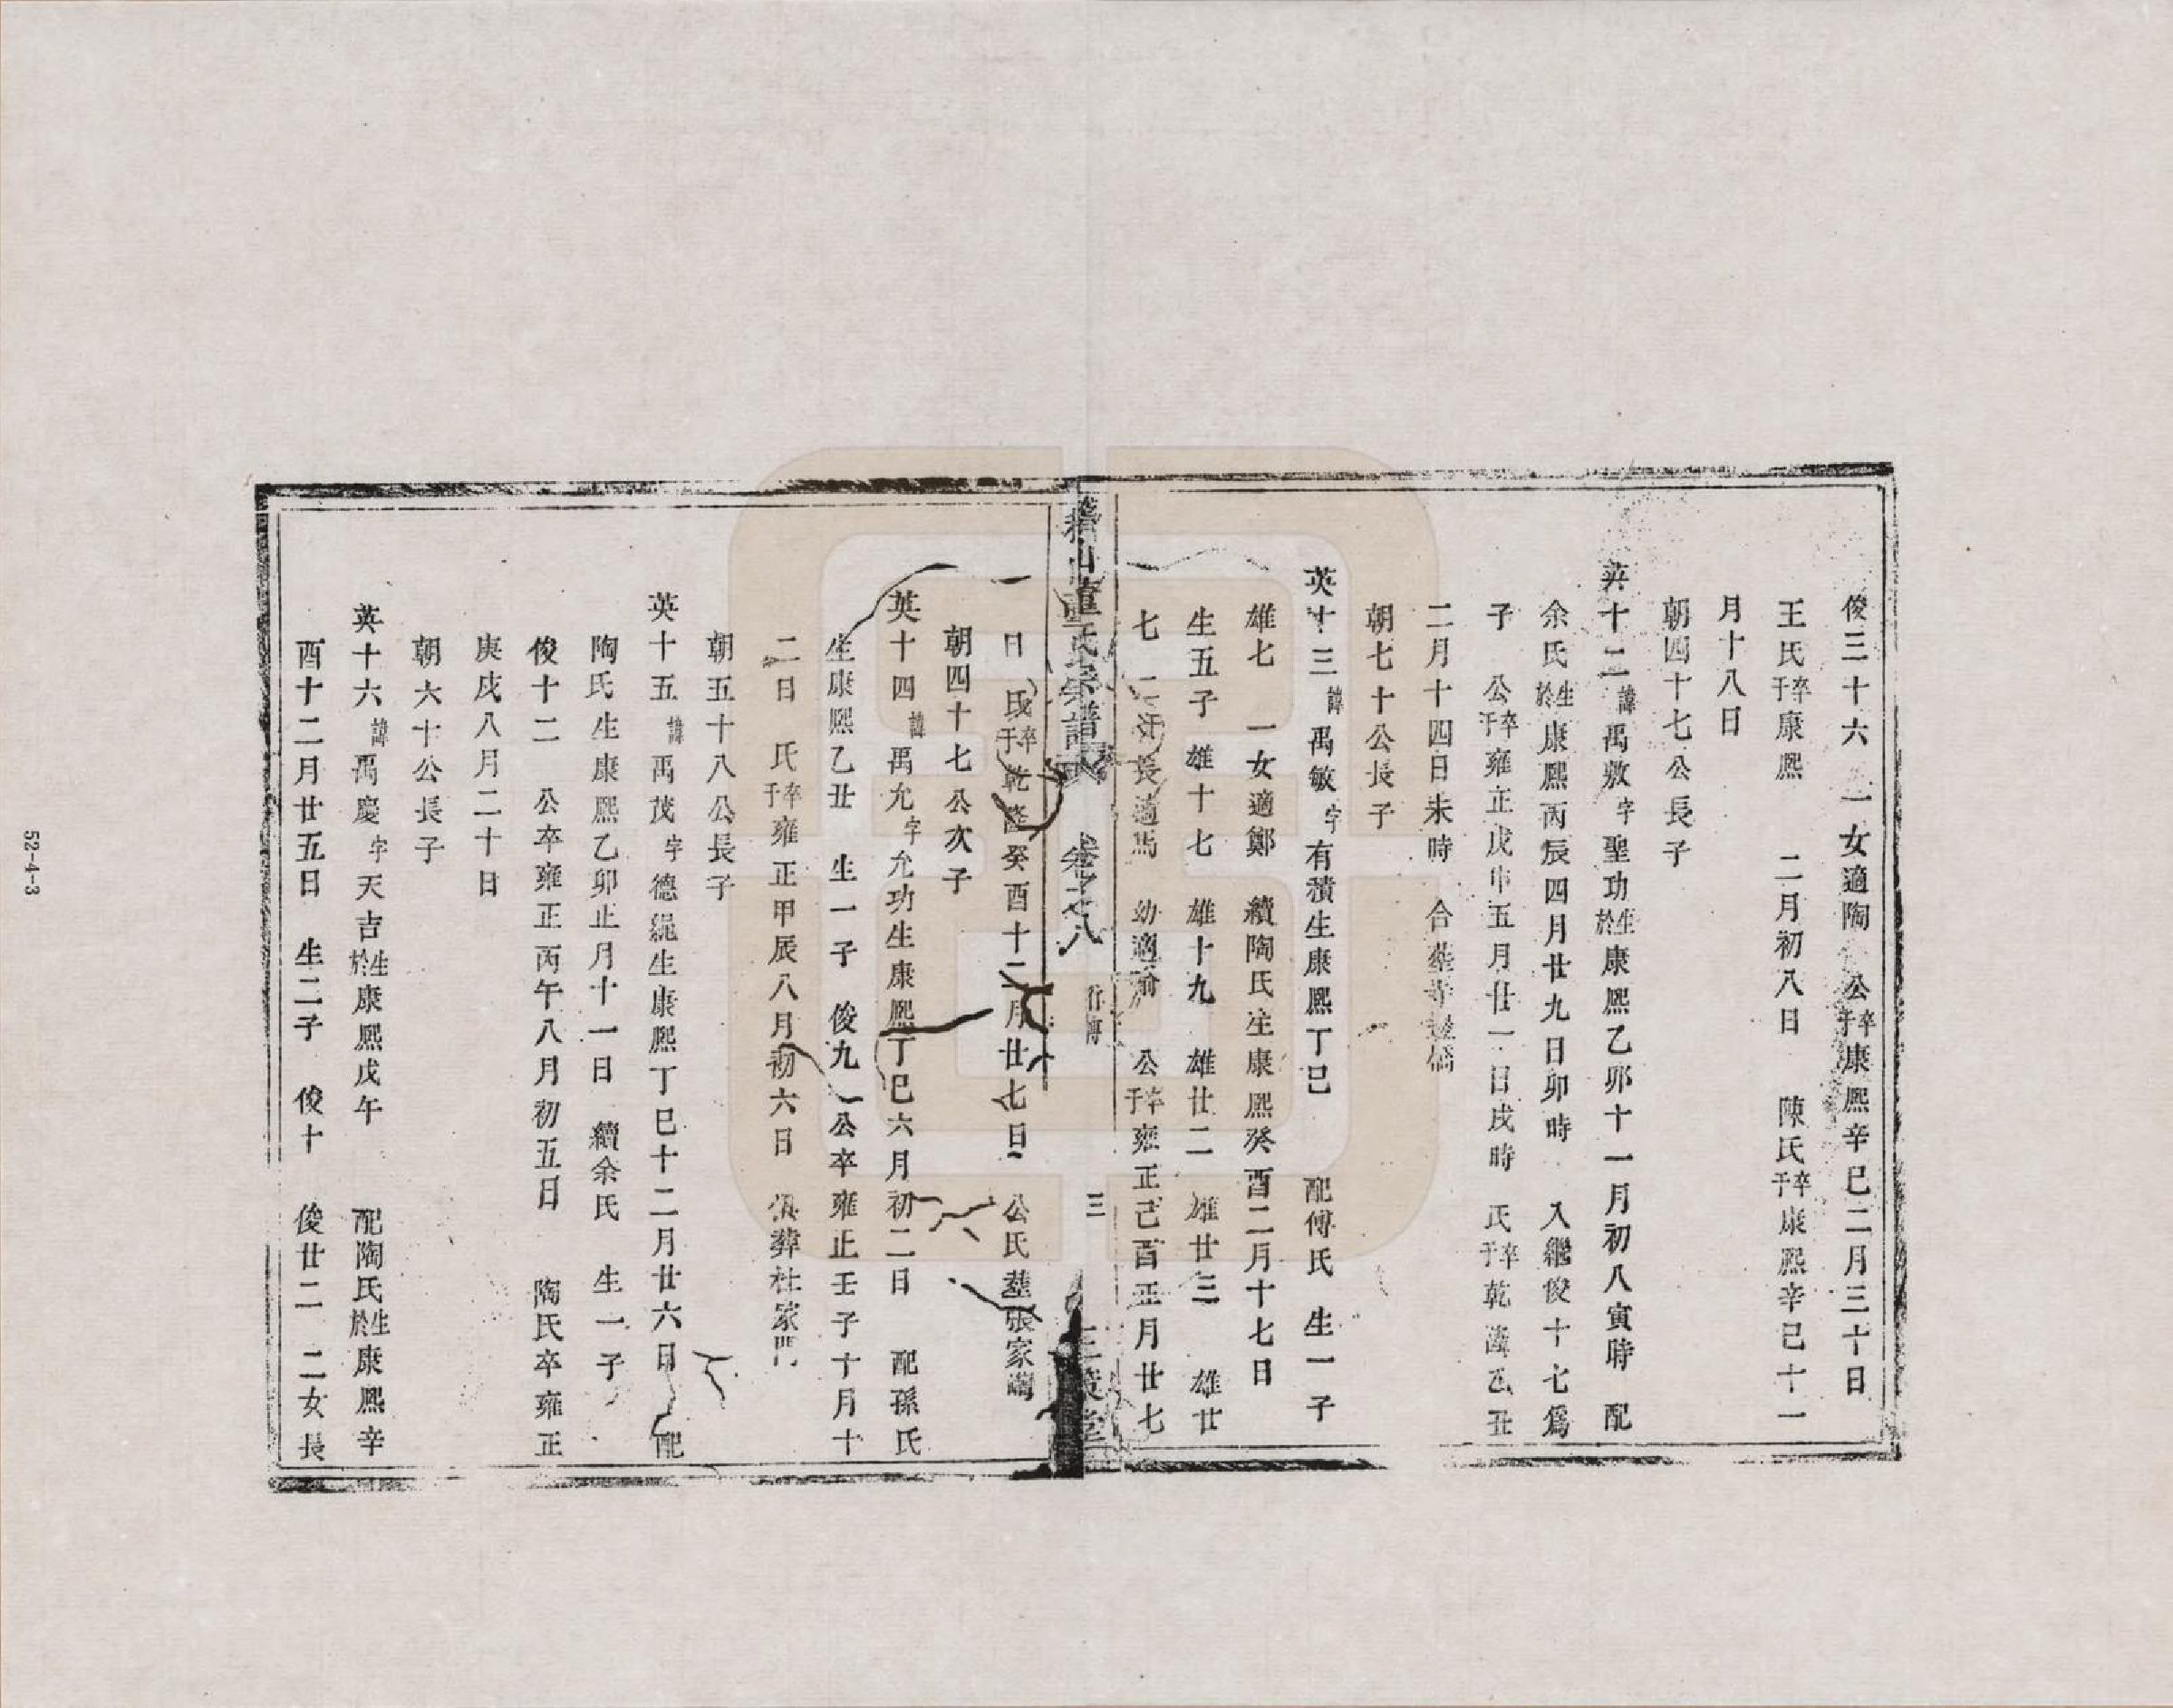 俊三十六 一女適陶 公卒于康熙辛巳二月三十日
王氏卒于康熙 二月初八日 陳氏卒于康熙辛巳十一
月十八日
朝四十七公長子
英十二諱禹敷字聖功生於康熙乙卯十一月初八寅時 配
余氏生於康熙丙辰四月廿九日卯時 入繼俊十七爲
子 公卒于雍正戊申五月廿一日戌時 氏卒于乾隆乙丑
二月十四日未時 合葬
朝七十公長子
英十三諱禹敏字有積生康熙丁巳 配傅氏 生一子
雄七 一女適鄭 續陶氏生康熙癸酉二月十七日
生五子 雄十七 雄十九 雄廿二 雄廿三 雄廿
七 二女長適馬 幼適喻 公卒于雍正己酉正月廿七
山董氏宗譜 卷之八 行傳 三 三策堂
日 氏卒于乾隆癸酉十二月廿七日 公氏葬張家
朝四十七公次子
英十四諱禹允字允功生康熙丁巳六月初二日 配孫氏
生康熙乙丑 生一子 俊九 公卒雍正壬子十月十
二日 氏卒于雍正甲辰八月初六日 俱葬杜家門
朝五十八公長子
英十五諱禹茂字德繩生康熙丁巳十二月廿六日 配
陶氏生康熙乙卯正月十一日 續余氏 生一子
俊十二 公卒雍正丙午八月初五日 陶氏卒雍正
庚戌八月二十日
朝六十公長子
英十六諱禹慶字天吉生於康熙戊午 配陶氏生於康熙辛
酉十二月廿五日 生二子 俊十 俊廿二 二女長
52-4-3